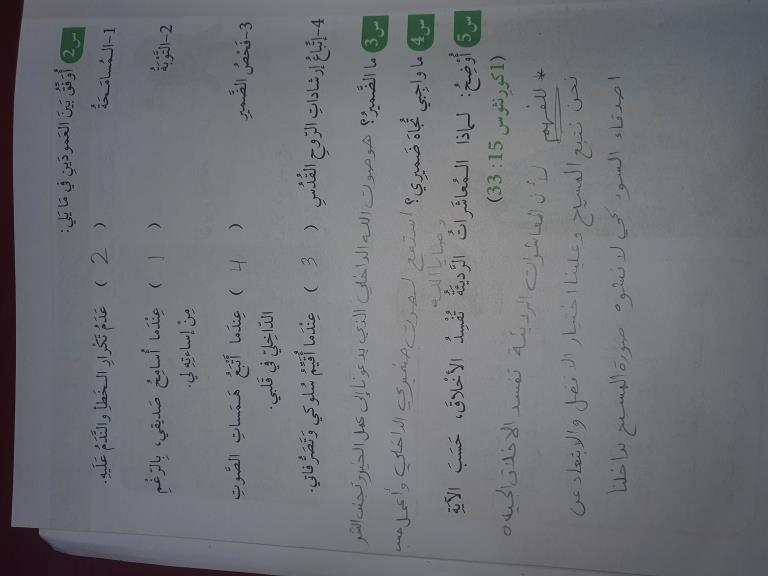 س2 أُوَفِّقُ بَيْنَ العَمودَيْنِ في مَا يَلي:
1-المُسامَحَةُ ( 2 ) عَدَمُ تَكْرارِ الخَطَأِ والنَّدَمُ عَلَيْهِ.
2-التَّوْبَةُ ( 1 ) عِنْدَما أُسامِحُ صَديقي، بِالرَّغْمِ
مِنْ إساءَتِهِ لي.
3-فَحْصُ الضَّميرِ ( 4 ) عِنْدَما أَتْبَعُ هَمَساتِ الصَّوْتِ
الدّاخِلِيِّ في قَلْبي.
4-إتِّباعُ إرشاداتِ الرّوحِ القُدُسِ ( 3 ) عِنْدَما أُقَيِّمُ سُلوكي وَتَصَرُّفاتي.
س3 ما الضَّميرُ؟ هو صوت الله الداخلي الذي يدعونا إلى عمل الخير وتجنب الشر
س4 ما واجِبي تُجاهَ ضَميري؟ استمع لصوت ضميري الداخلي وأعمل حسب
وصايا الله
س5 أُوَضِّحُ: لماذا المُعاشَراتُ الرَّديئَةُ تُفْسِدُ الأَخْلاقَ، حَسَبَ الآيَةِ
(1كورنثوس 15 : 33)
* للفهم لأن المعاشرات الرديئة تفسد الاخلاق الجيدة
نحن نتبع المسيح وعلينا اختيار الافضل والابتعاد عن
اصدقاء السوء كي لا نشوه صورة المسيح بداخلنا